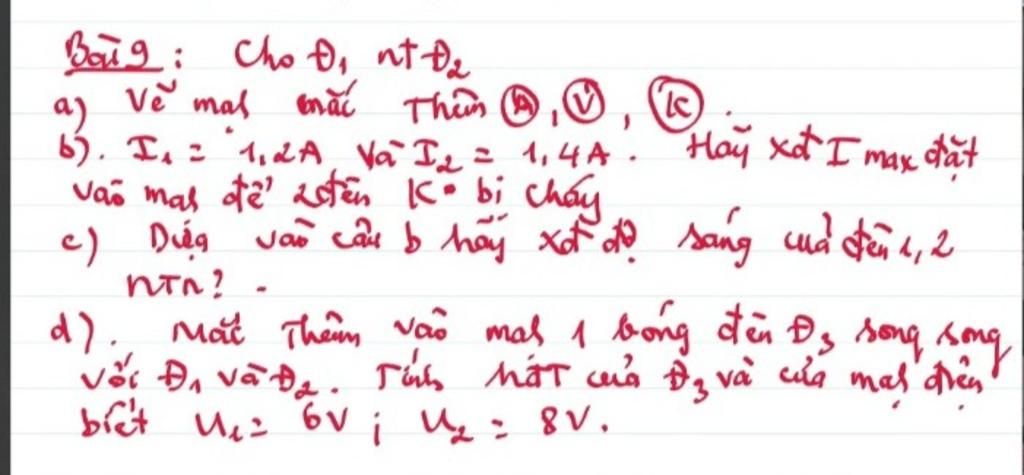 Bài 9: Cho Đ₁ nt Đ₂
a) Vẽ mạh mắc Thêm Ⓐ, Ⓥ, Ⓚ.
b). I₁ = 1,2A và I₂ = 1,4A. Hãy xđ I max đặt
vào mạh để 2 đèn K bị cháy
c) Dựa vào câu b hãy xđ độ sáng cuả đèn 1, 2
nTn? -
d). Mắc Thêm vào mạh 1 bóng đèn Đ₃ song song
với Đ₁ và Đ₂. Tính HĐT cuả Đ₃ và của mạh điện
biết U₁ = 6V ; U₂ = 8V.